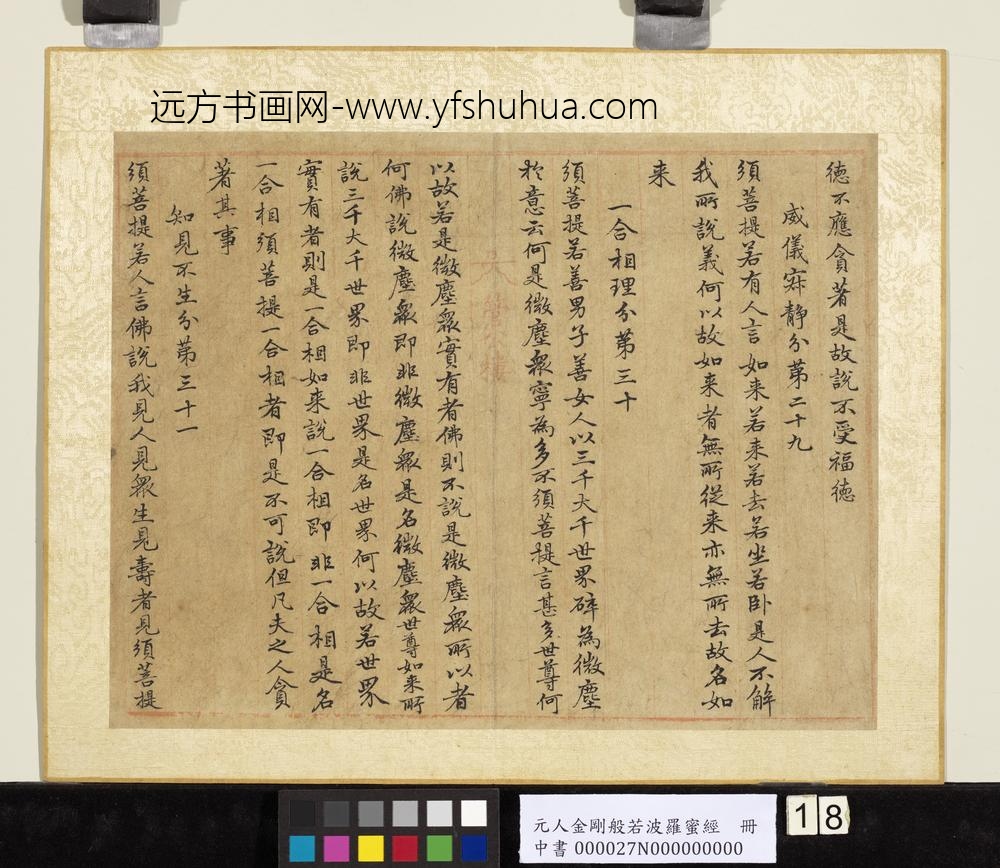 远方书画网-www.yfshuhua.com
德不應貪著是故說不受福德
威儀寂静分第二十九
須菩提若有人言如来若来若去若坐若卧是人不解
我所說義何以故如来者無所從来亦無所去故名如
来
一合相理分第三十
須菩提若善男子善女人以三千大千世界碎為微塵
於意云何是微塵眾寧為多不須菩提言甚多世尊何
以故若是微塵眾實有者佛則不說是微塵眾所以者
何佛說微塵眾即非微塵眾是名微塵眾世尊如来所
說三千大千世界即非世界是名世界何以故若世界
實有者則是一合相如来說一合相即非一合相是名
一合相須菩提一合相者即是不可說但凡夫之人貪
著其事
知見不生分第三十一
須菩提若人言佛說我見人見眾生見壽者見須菩提
元人金剛般若波羅蜜經 冊
中書 000027N000000000
18